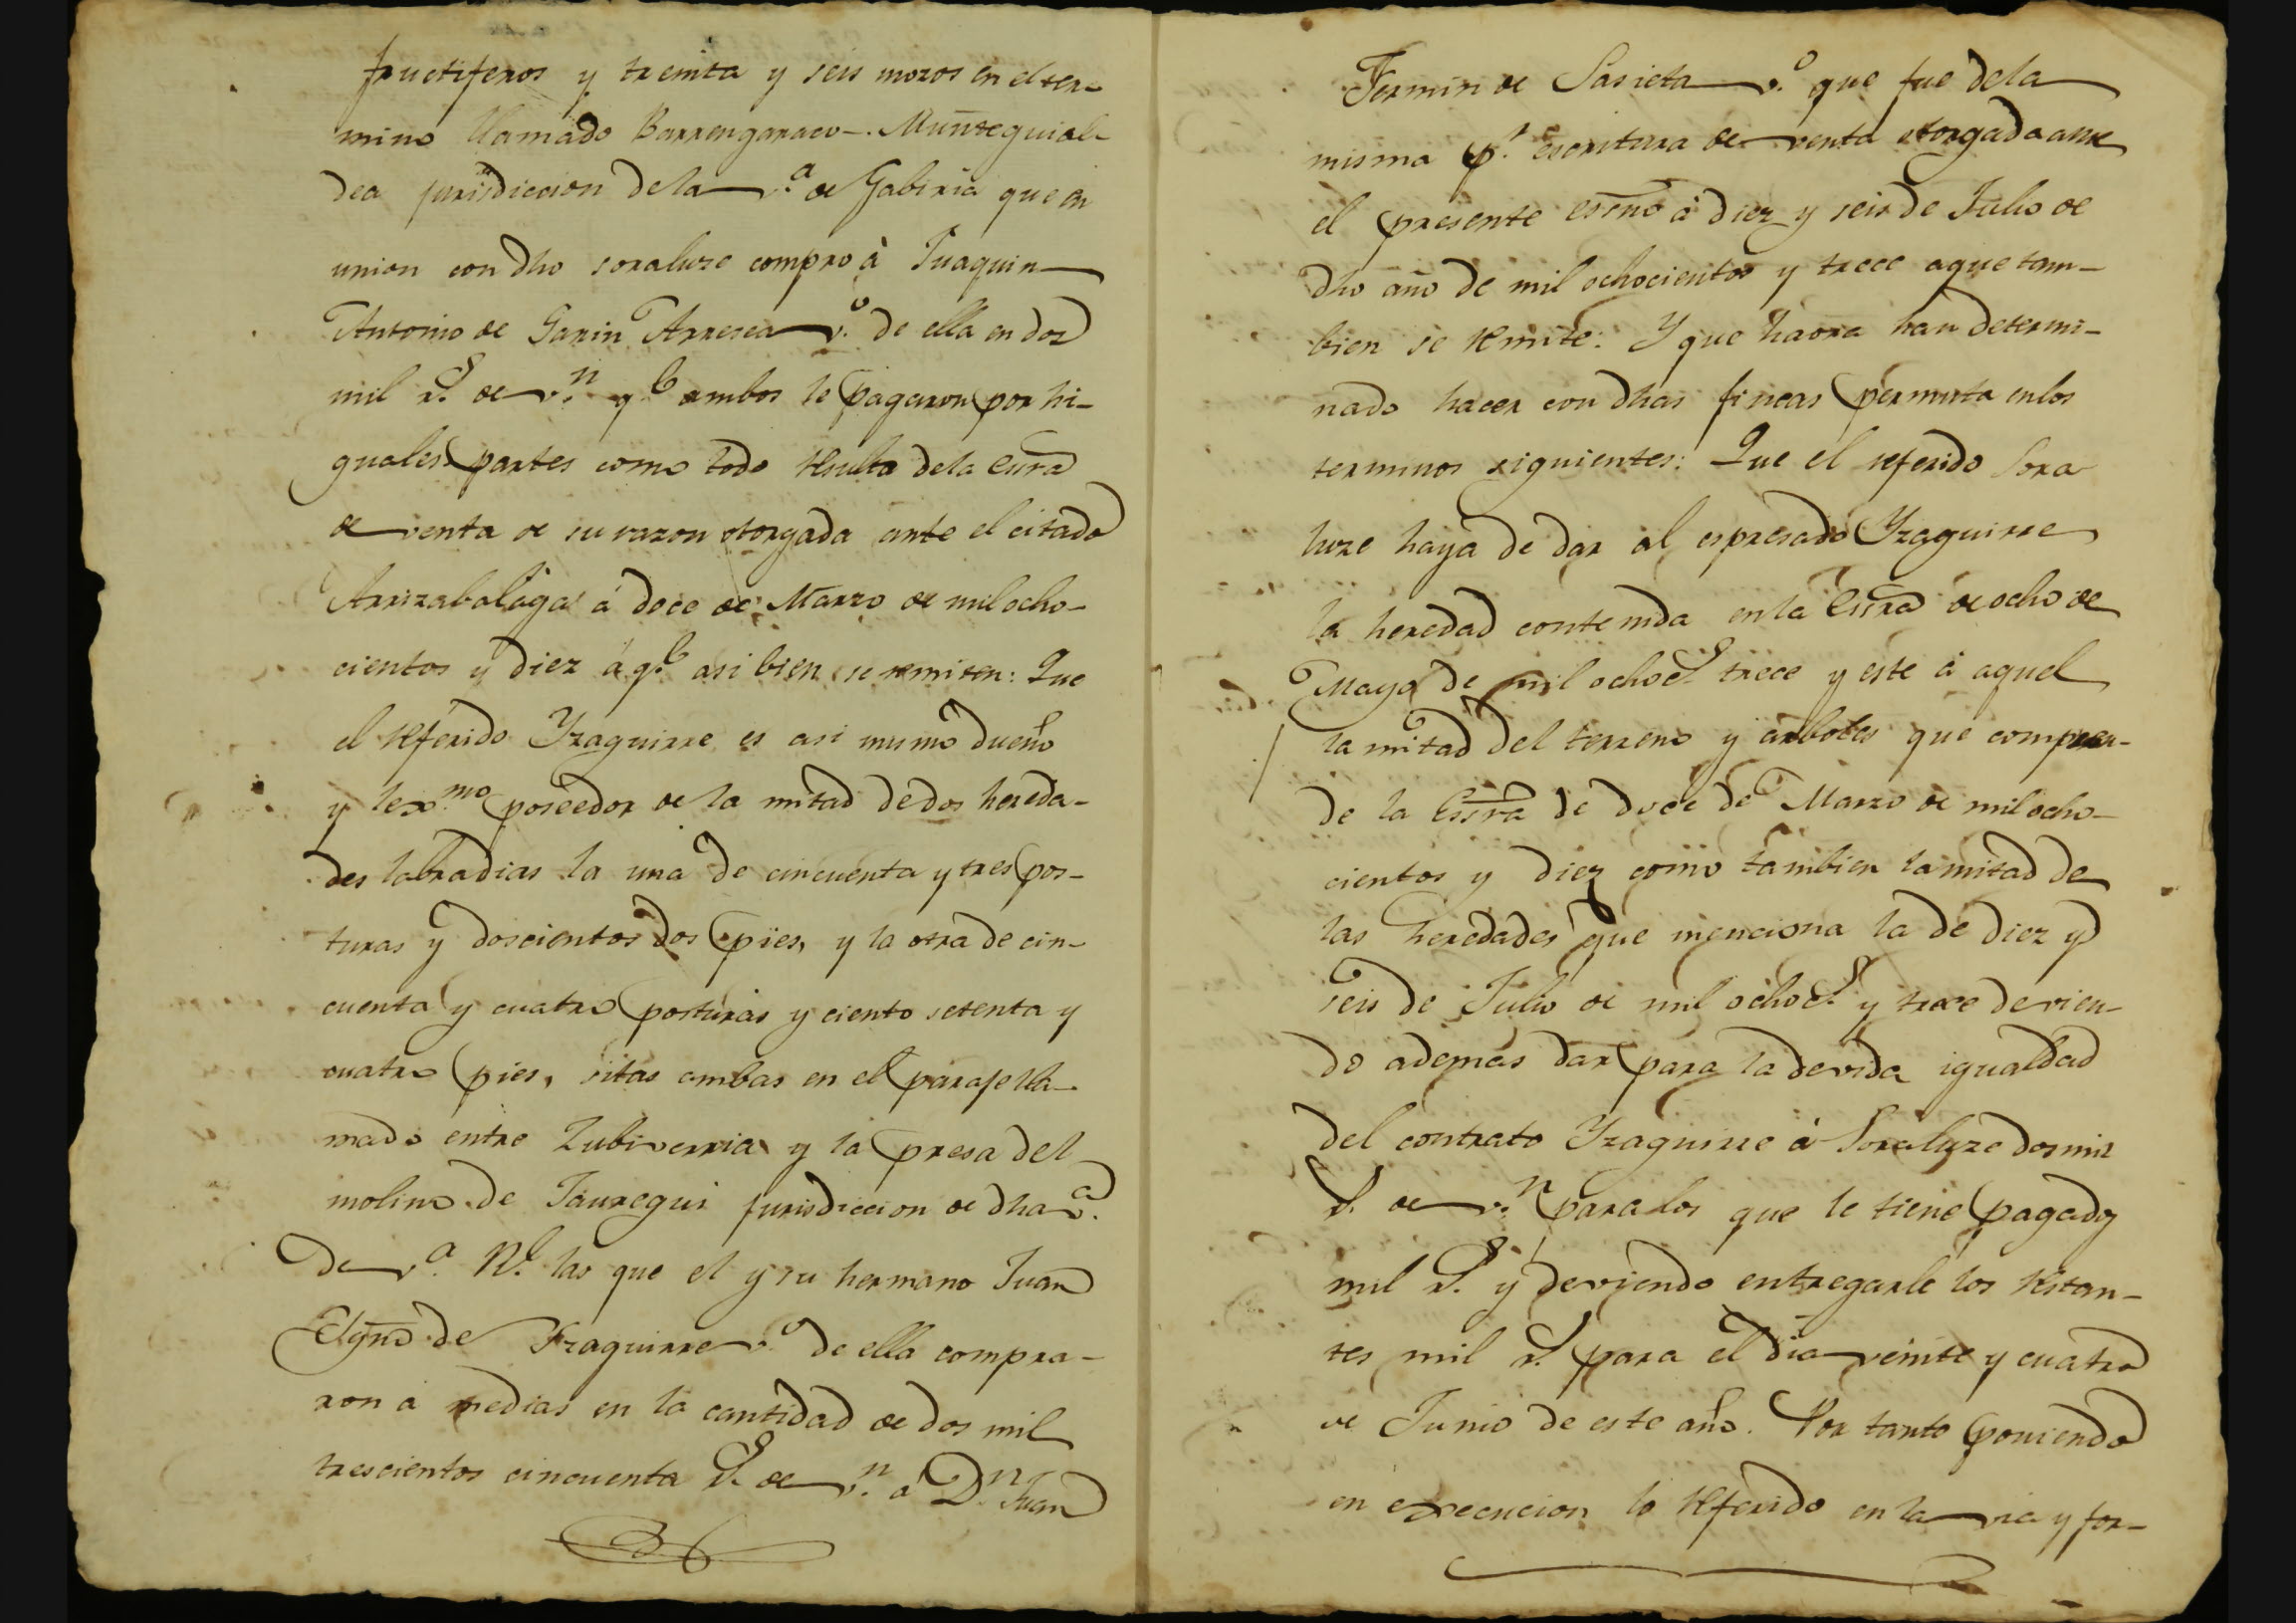 fructiferos y treinta y seis mozos en el ter-
mino llamado Barrengaraco-Muñteguial-
dea jurisdiccion dela v.ª de Gabiria que en
union con dho soraluze compro à Juaquin
Antonio de Garin Arresea v.º de ella en dos
mil r.s de v.n q.e ambos le pagaron por hi-
guales partes como todo resulta dela Esrâ
de venta de su razon otorgada ante el citado
Arrizabalaga á doce de Marzo de mil ocho-
cientos y diez á q.e asi bien se remiten: Que
el referido Yzaguirre es asi mismo dueño
y lex.mo poseedor de la mitad de dos hereda-
des labradias la una de cincuenta y tres pos-
turas y doscientos dos pies, y la otra de cin-
cuenta y cuatro posturas y ciento setenta y
cuatro pies, sitas ambas en el paraje lla-
mado entre Zubiverria y la presa del
molino de Jauregui jurisdiccion de dha v.ª
De v.ª R.l las que el y su hermano Juan
de Yzaguirre v.º de ella compra-
ron á medias en la cantidad de dos mil
trescientos cincuenta r.s de v.n á D.n Juan
Fermin de Sasieta v.º que fue dela
misma p.r escritura de venta otorgada ante
el presente essno á diez y seis de Julio de
dho año de mil ochocientos y trece aque tam-
bien se remite: Y que haora han determi-
nado hacer con dhas fincas permuta en los
terminos siguientes: Que el referido Sora
luze haya de dar al espresado Yzaguirre
la heredad contenida en la Essrâ de ocho de
Mayo de mil ochoc.s trece y este á aquel
la mitad del terreno y arboles que compren-
de la Essrâ de doce de Marzo de mil ocho-
cientos y diez como tambien la mitad de
las heredades que menciona la de diez y
seis de Julio de mil ochoc.s y trece devien-
do ademas dar para la devida igualdad
del contrato Yzaguirre á Soraluze dos mil
r.s de v.n para los que le tiene pagados
mil r.s y deviendo entregarle los restan-
tes mil r.s para el dia veinte y cuatro
de Junio de este año. Por tanto poniendo
en execucion lo referido en la via y for-